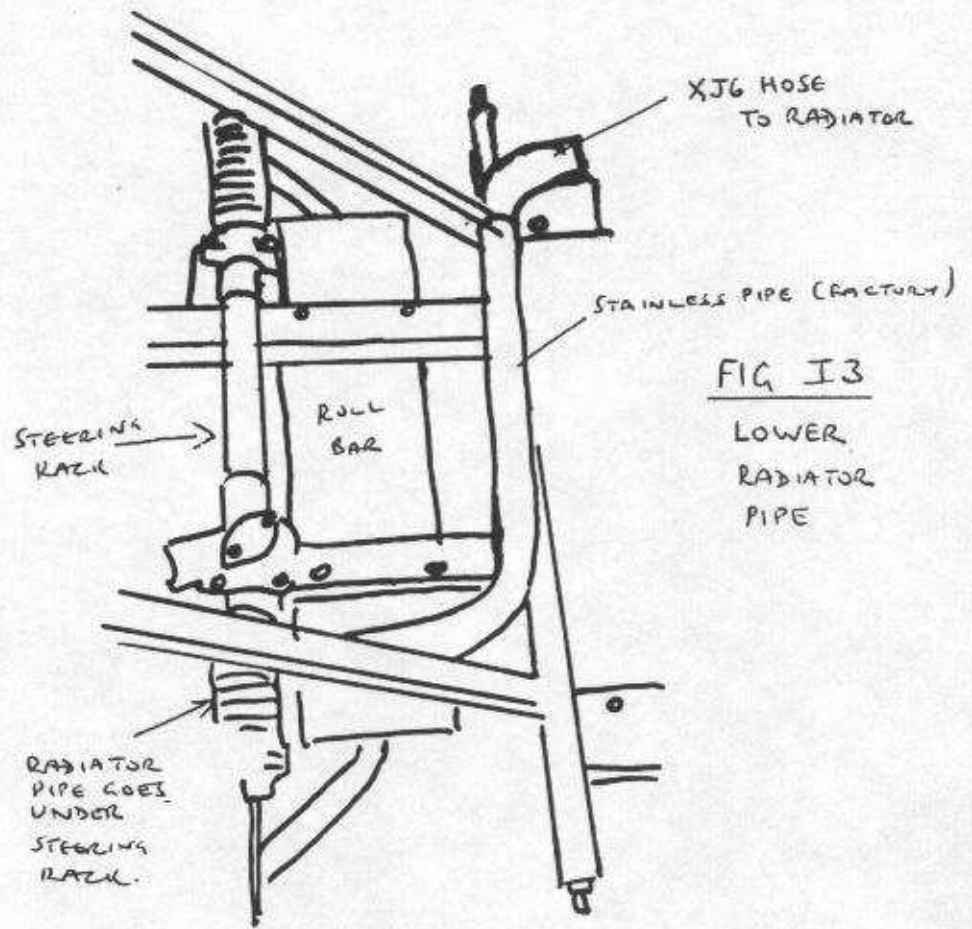 XJ6 HOSE
TO RADIATOR
STAINLESS PIPE (FACTORY)
FIG I3
LOWER
RADIATOR
PIPE
ROLL
BAR
STEERING
RACK
RADIATOR
PIPE GOES
UNDER
STEERING
RACK.